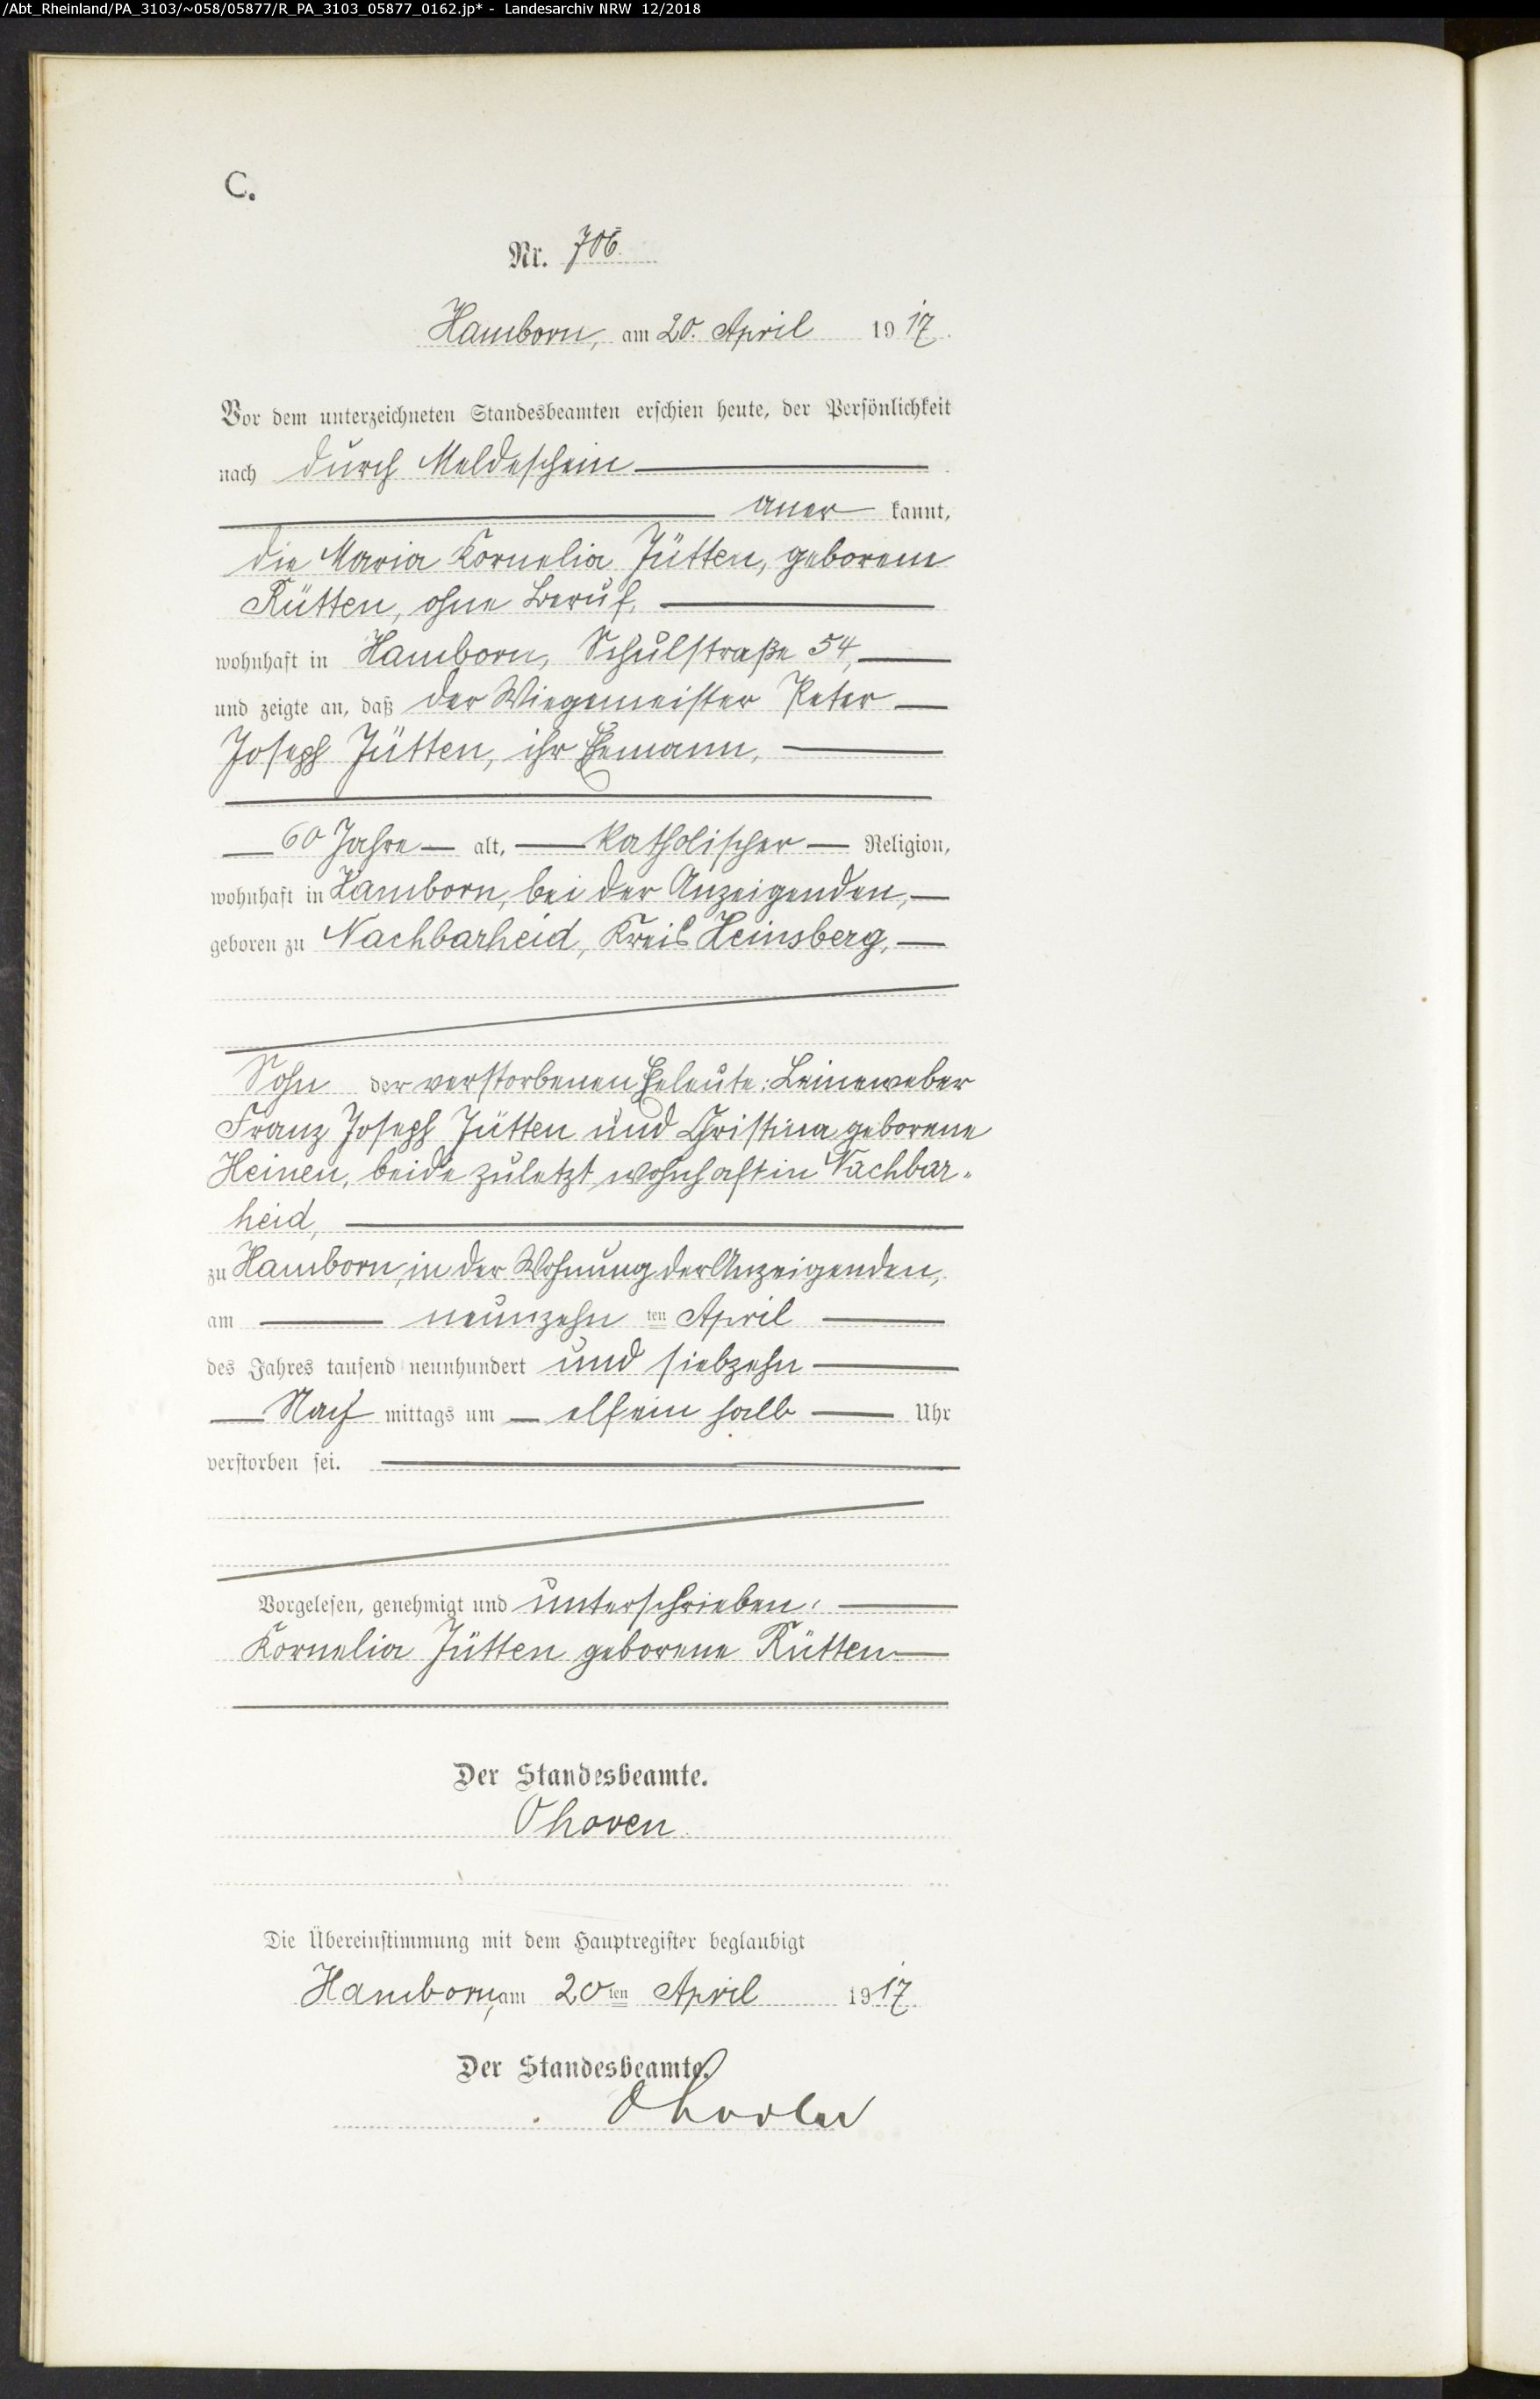 /Abt_Rheinland/PA_3103/~058/05877/R_PA_3103_05877_0162.jp* - Landesarchiv NRW 12/2018
C.
Nr. 706.
Hamborn, am 20. April 1917.
Vor dem unterzeichneten Standesbeamten erschien heute, der Persönlichkeit
nach durch Meldeschein
aner kannt,
die Maria Kornelia Jütten, geborene
Rütten, ohne Beruf,
wohnhaft in Hamborn, Schulstraße 54,
und zeigte an, daß der Wiegemeister Peter
Joseph Jütten, ihr Ehemann,
60 Jahre alt, katholischer Religion,
wohnhaft in Hamborn, bei der Anzeigenden,
geboren zu Nachbarheid, Kreis Heinsberg,
Sohn der verstorbenen Eheleute: Leineweber
Franz Joseph Jütten und Christina geborene
Heinen, beide zuletzt wohnhaft in Nachbar-
heid,
zu Hamborn, in der Wohnung der Anzeigenden,
am neunzehn ten April
des Jahres tausend neunhundert und siebzehn
Nach mittags um elfein halb Uhr
verstorben sei.
Vorgelesen, genehmigt und unterschrieben:
Kornelia Jütten geborene Rütten
Der Standesbeamte.
Ohoven.
Die Übereinstimmung mit dem Hauptregister beglaubigt
Hamborn, am 20ten April 1917.
Der Standesbeamte.
Ohoven